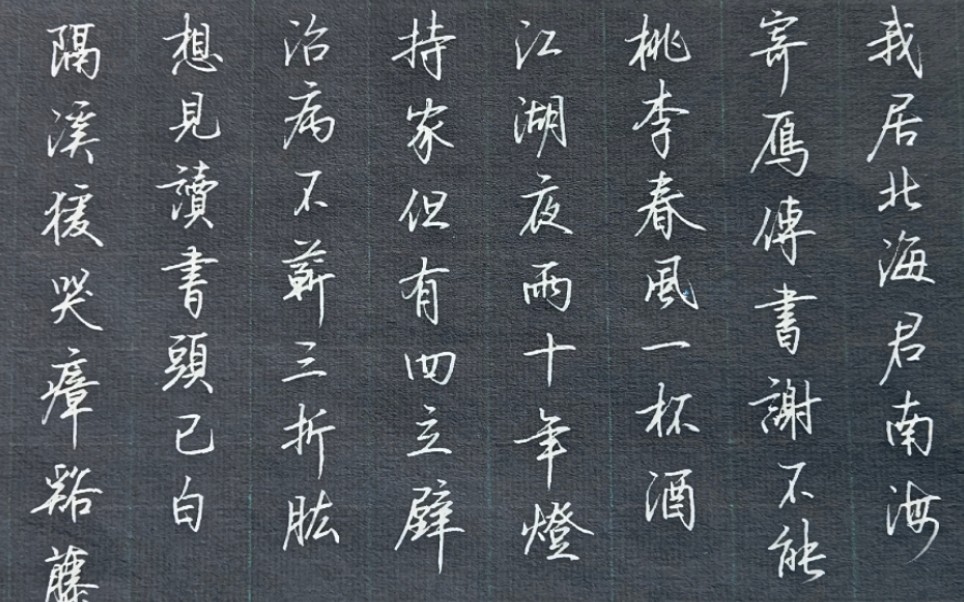 我居北海君南海
寄鴈傳書謝不能
桃李春風一杯酒
江湖夜雨十年燈
持家但有四立壁
治病不蘄三折肱
想見讀書頭已白
隔溪猨哭瘴谿藤